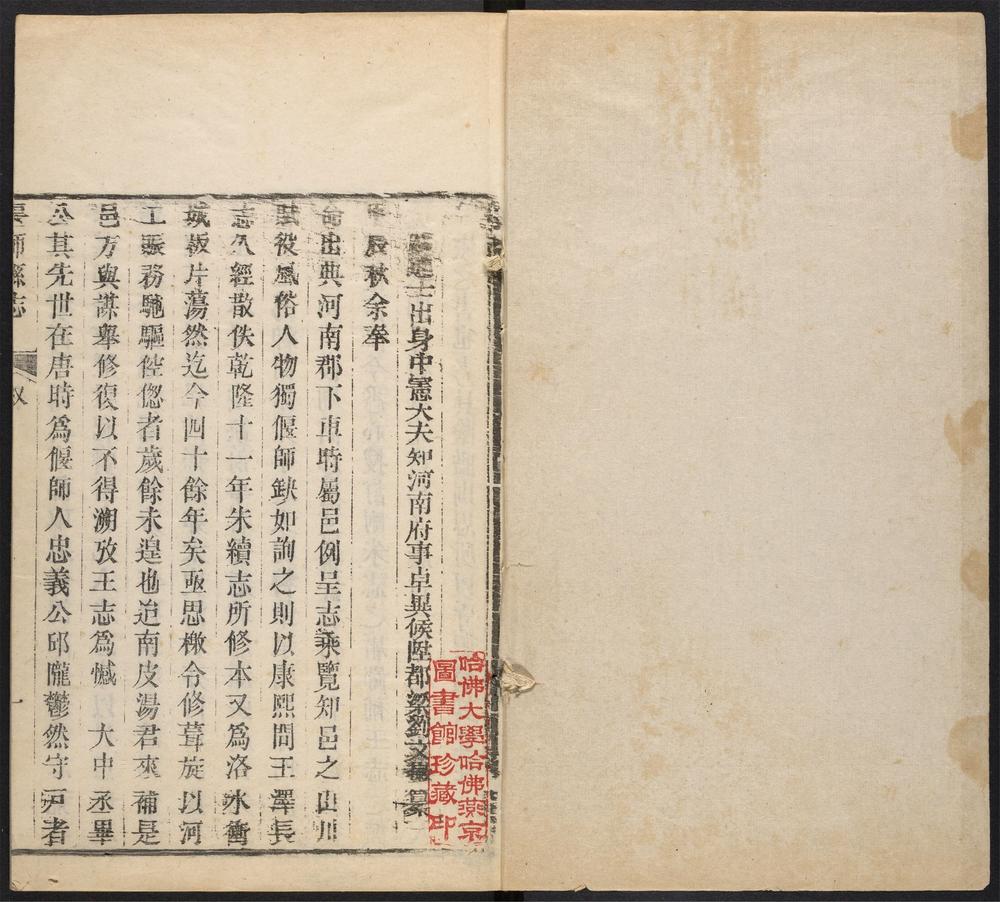 進士出身中憲大夫知河南府事卓異候陞都梁劉文徽纂
辰秋余奉
命出典河南郡下車時屬邑例呈志乘覽知邑之山川
賦役風俗人物獨偃師缺如詢之則以康熙間王澤長
志久經散佚乾隆十一年朱續志所修本又為洛水衝
城板片蕩然迄今四十餘年矣亟思檄令修葺旋以河
工振務馳驅倥偬者歲餘未遑也迨南皮湯君來補是
邑方與謀舉修復以不得溯攷王志為憾 大中丞畢
公其先世在唐時為偃師人忠義公邱隴鬱然守戸者
偃師縣志
敘
一
哈佛大學哈佛燕京
圖書館珍藏印